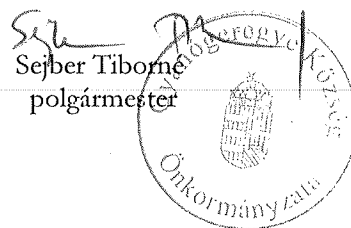 Sejber Tiborné
polgármester
Gyanógeregye Község
Önkormányzata